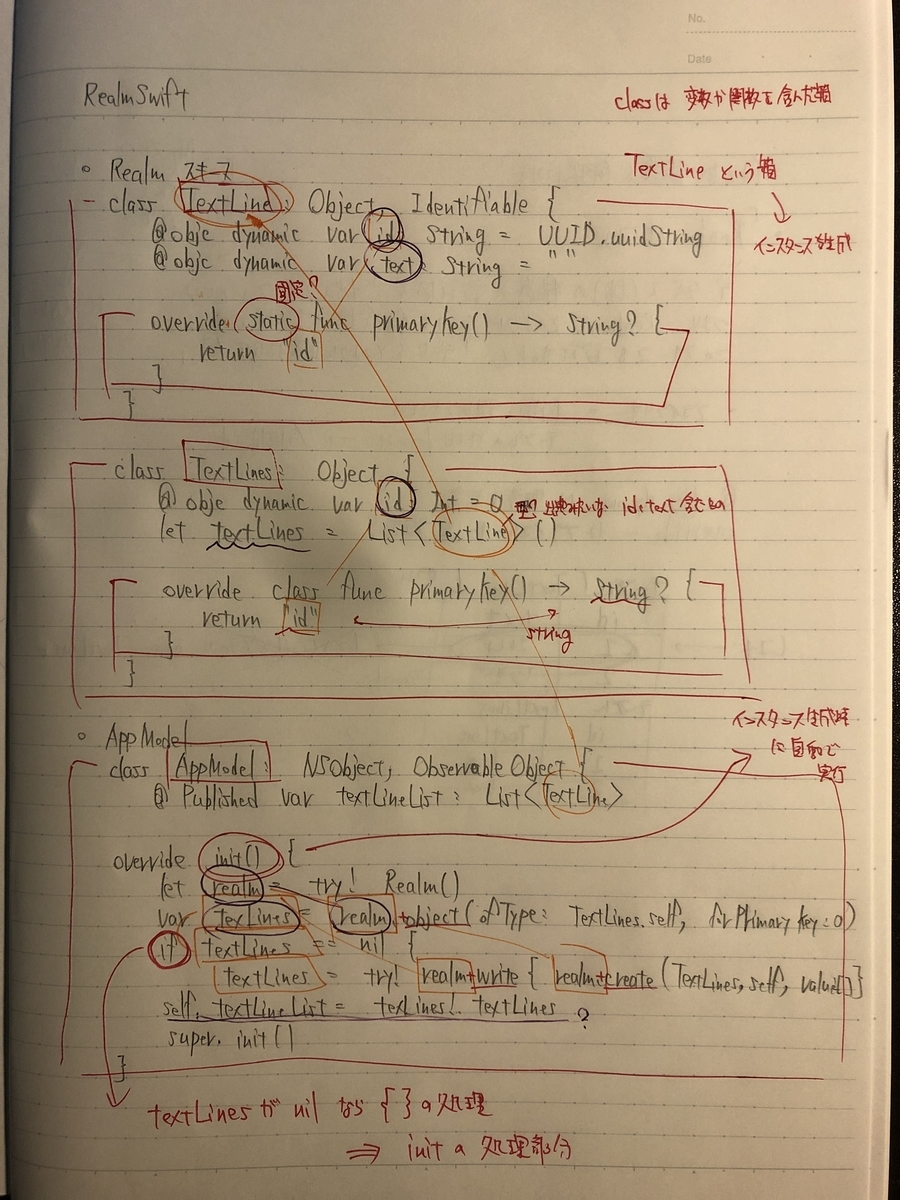 No.
Date
RealmSwift
classは 変数か関数を含んだ箱
Realm スキーマ
TextLine という箱
class TextLine : Object, Identifiable {
インスタンス生成
@objc dynamic var id : String = UUID.uuidString
@objc dynamic var text : String = ""
固定?
override static func primaryKey() → String? {
return "id"
}
}
class TextLines : Object {
@objc dynamic var id : Int = 0
id:text 含む
let textLines = List<TextLine>()
override class func primaryKey() → String? {
return "id"
string
}
}
インスタンス生成時
に自動で
実行
AppModel
class AppModel : NSObject, ObservableObject {
@Published var textLineList : List<TextLine>
override init() {
let realm = try! Realm()
var texLines = realm.object(ofType: TextLines.self, forPrimaryKey: 0)
if textLines == nil {
textLines = try! realm.write { realm.create(TextLines, self, value[])}
self. textLineList = texLines!. textLines ?
super. init()
}
textLinesが nil なら { }の処理
⇒ initの 処理部分